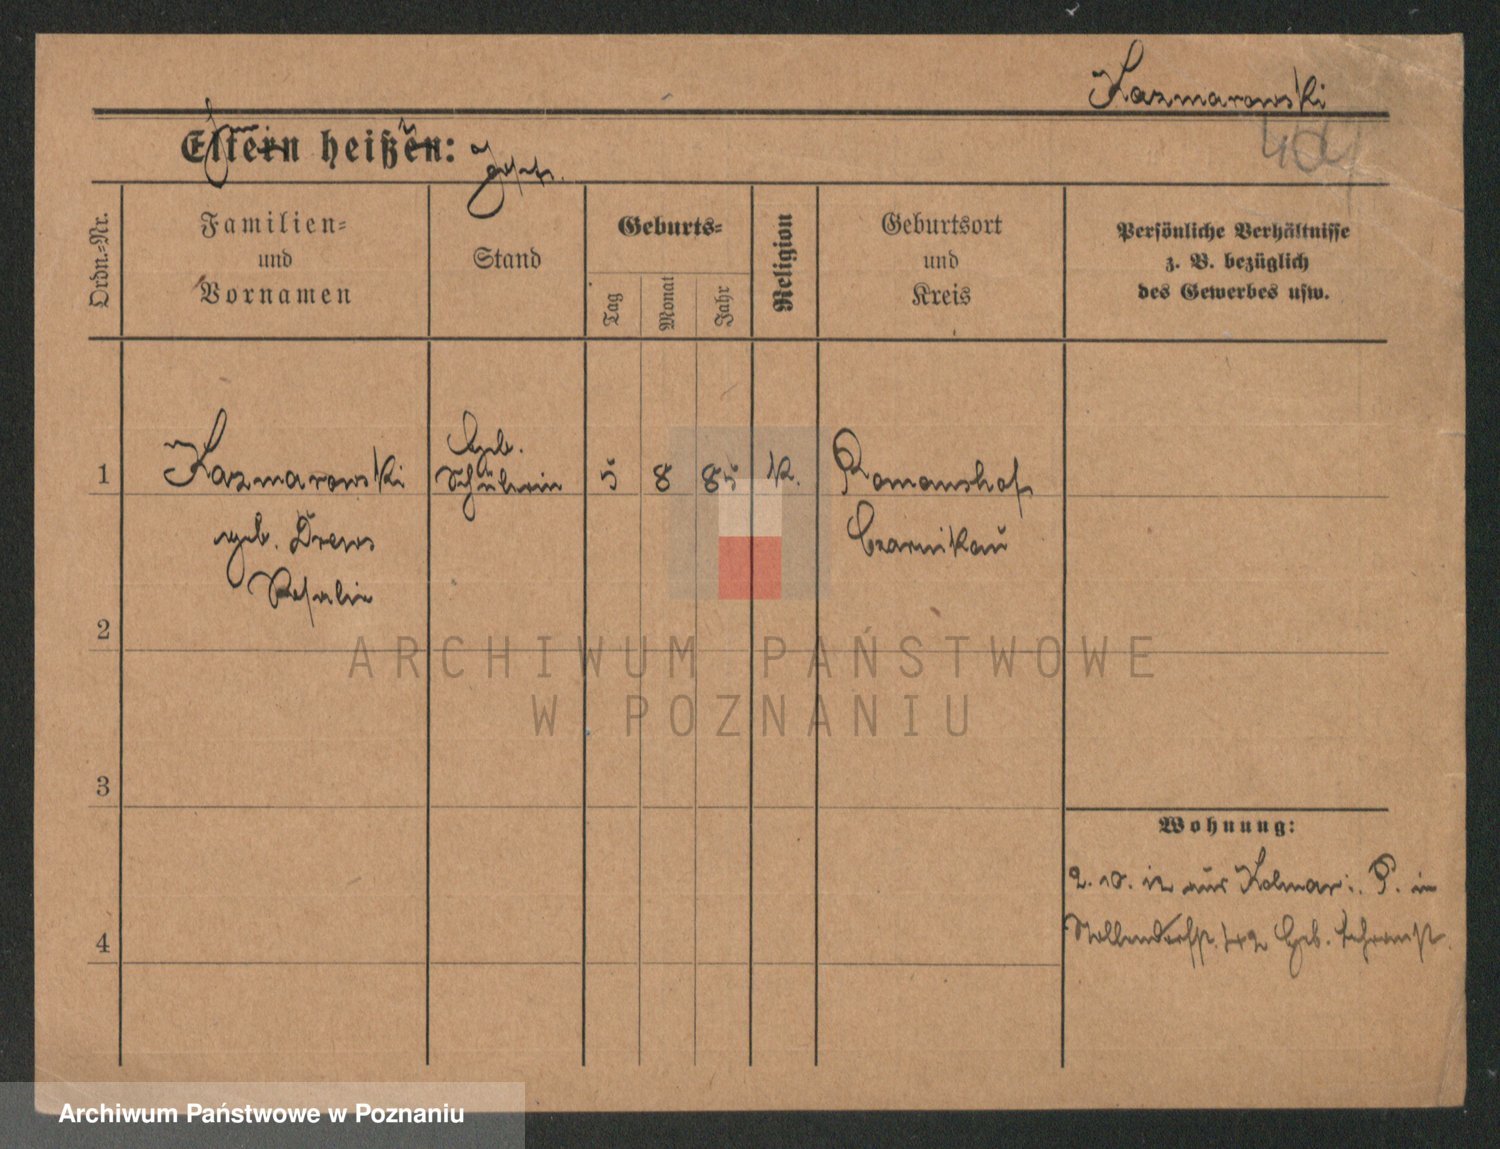 Kazmarowski
Eltern heißen:
Ordn.-Nr.
Familien-
und
Vornamen
Stand
Geburts-
Tag
Monat
Jahr
Religion
Geburtsort
und
Kreis
Persönliche Verhältnisse
z. B. bezüglich
des Gewerbes usw.
1
Kazmarowski
geb. Drews
Rosalie
5
8
85
K.
Romanshof
Czarnikau
2
3
4
Wohnung:
2. 10. 12 aus Kolmar i. P. in
ARCHIWUM PAŃSTWOWE
W POZNANIU
Archiwum Państwowe w Poznaniu